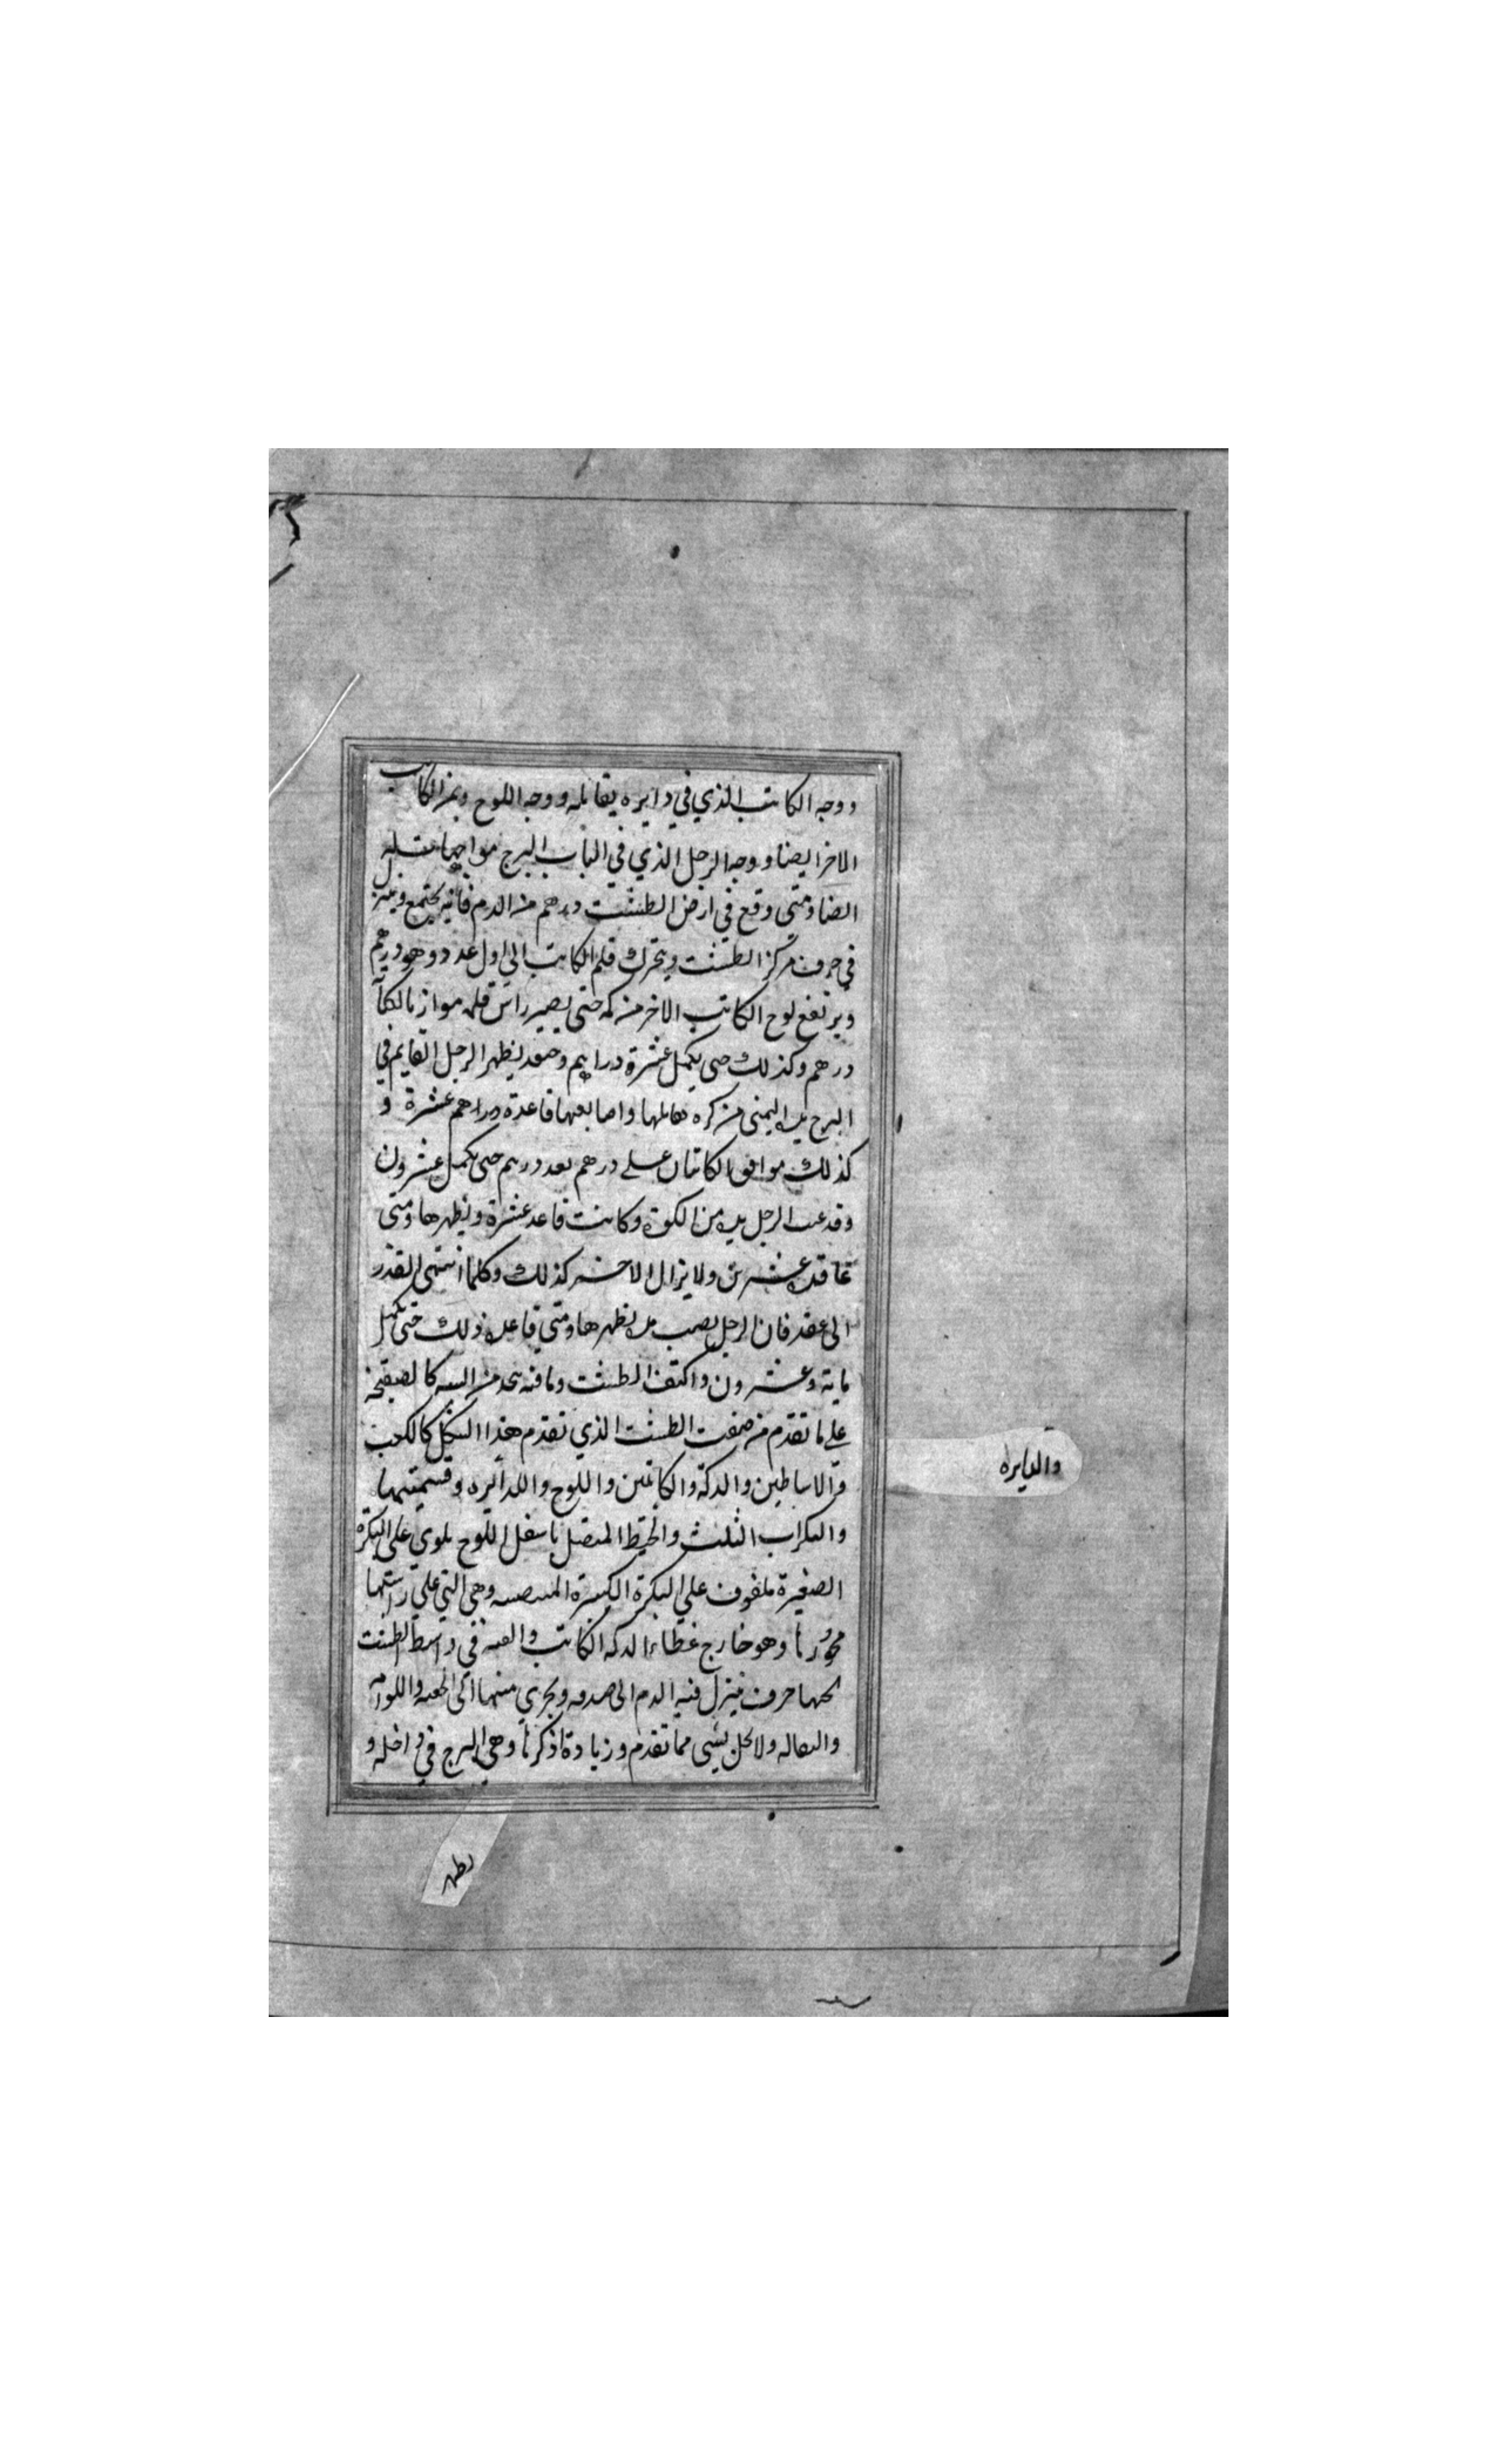 ووجه الكاتب الذي في دايره يقابله ووجه اللوح وبمز الكاتب
الاخر ايضا ووجه الرجل الذي في الباب البرج مواجها
ايضا ومتى وقع في ارض الطشت درهم من الدم فانه يجتمع وينزل
في حرف مركز الطشت ويتحرك قلم الكاتب الى اول عدد وهو درهم
ويرتفع لوح الكاتب الاخر من كمه حتى يصير راس قلمه موازيا لكتا
درهم وكذلك حتى يكمل عشرة دراهم وحينئذ يظهر الرجل القايم في
البرج يده اليمنى من كوه تقابلها واصابعها قاعدة دراهم عشرة و
كذلك موافق الكاتبان على درهم بعد درهم حتى يكمل عشرون
وقد الرجل يده من الكوة وكانت قاعد عشرة ويظهرها ومتى
عاقده عشرين ولا يزال الاخر كذلك وكلما انتهى القدر
الى عقد فان الرجل يده يظهرها ومتى ذلك حتى يكمل
ماية وعشرون واكتف الطشت وما فيه
على ما تقدم من صفت الطشت الذي تقدم هذا الشكل كالكعب
والاساطين والدكة والكاتبين واللوح والدايره وقسمتها
والبكرات الثلث والخيط المتصل باسفل اللوح يلوي على البكرة
الصغيرة ملفوف على البكرة الكبيرة وهي التي على راستها
محورنا وهو خارج غطاء الدكه الكاتب في واسط الطشت
حرف ينزل فيه الدم الى ويجري منها الى
ولا يخل بشي مما تقدم وزيادة اذكرنا وهي البرج في داخله و
والدايره
يظهر